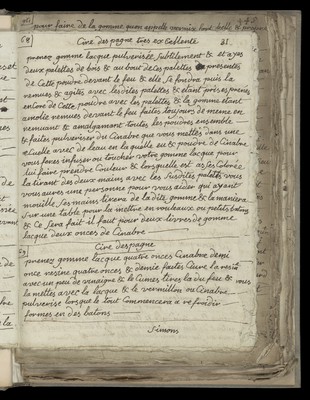 pour faire de la gomme quon appelle
68
Cire despagne tres excellente
31.
prenez gomme lacque pulverisée subtilement & et ayes
deux palettes de bois & au bout de ces palettes presentes
de cette poudre devant le feu & elle se fondra puis la
remues & agites avec lesdites palettes & etant prises prenes
encore de cette poudre avec les palettes & la gomme etant
amolie remues devant le feu faites toujours de meme en
remuant & amalgamant toutes les poudres ensemble
& faites pulveriser du Cinabre que vous mettes dans une
escuelle avec de leau en laquelle eu & poudre de Cinabre
vous feres infuser ou toucher votre gomme lacque pour
lui faire prendre couleur & lorsquelle est asses colorée
la tirant des deux mains avec les susdites palettes vous
vous aures une personne pour vous aider qui ayant
mouillé ses mains tirera de ladite gomme & la maniera
sur une table pour la mettre en rouleaux ou petits batons
& ce sera fait il faut pour deux livres de gomme
lacque deux onces de Cinabre
69
Cire despagne
prenez gomme lacque quatre onces Cinabre demi
once resine quatre onces & demie faites Cuire la resine
avec un peu de vinaigre & le Cumes tires la du feu & vous
la mettes avec la lacque & le vermillon ou Cinabre
pulverise lorsque le tout Commencera a se fondre
formes en des batons
Simons